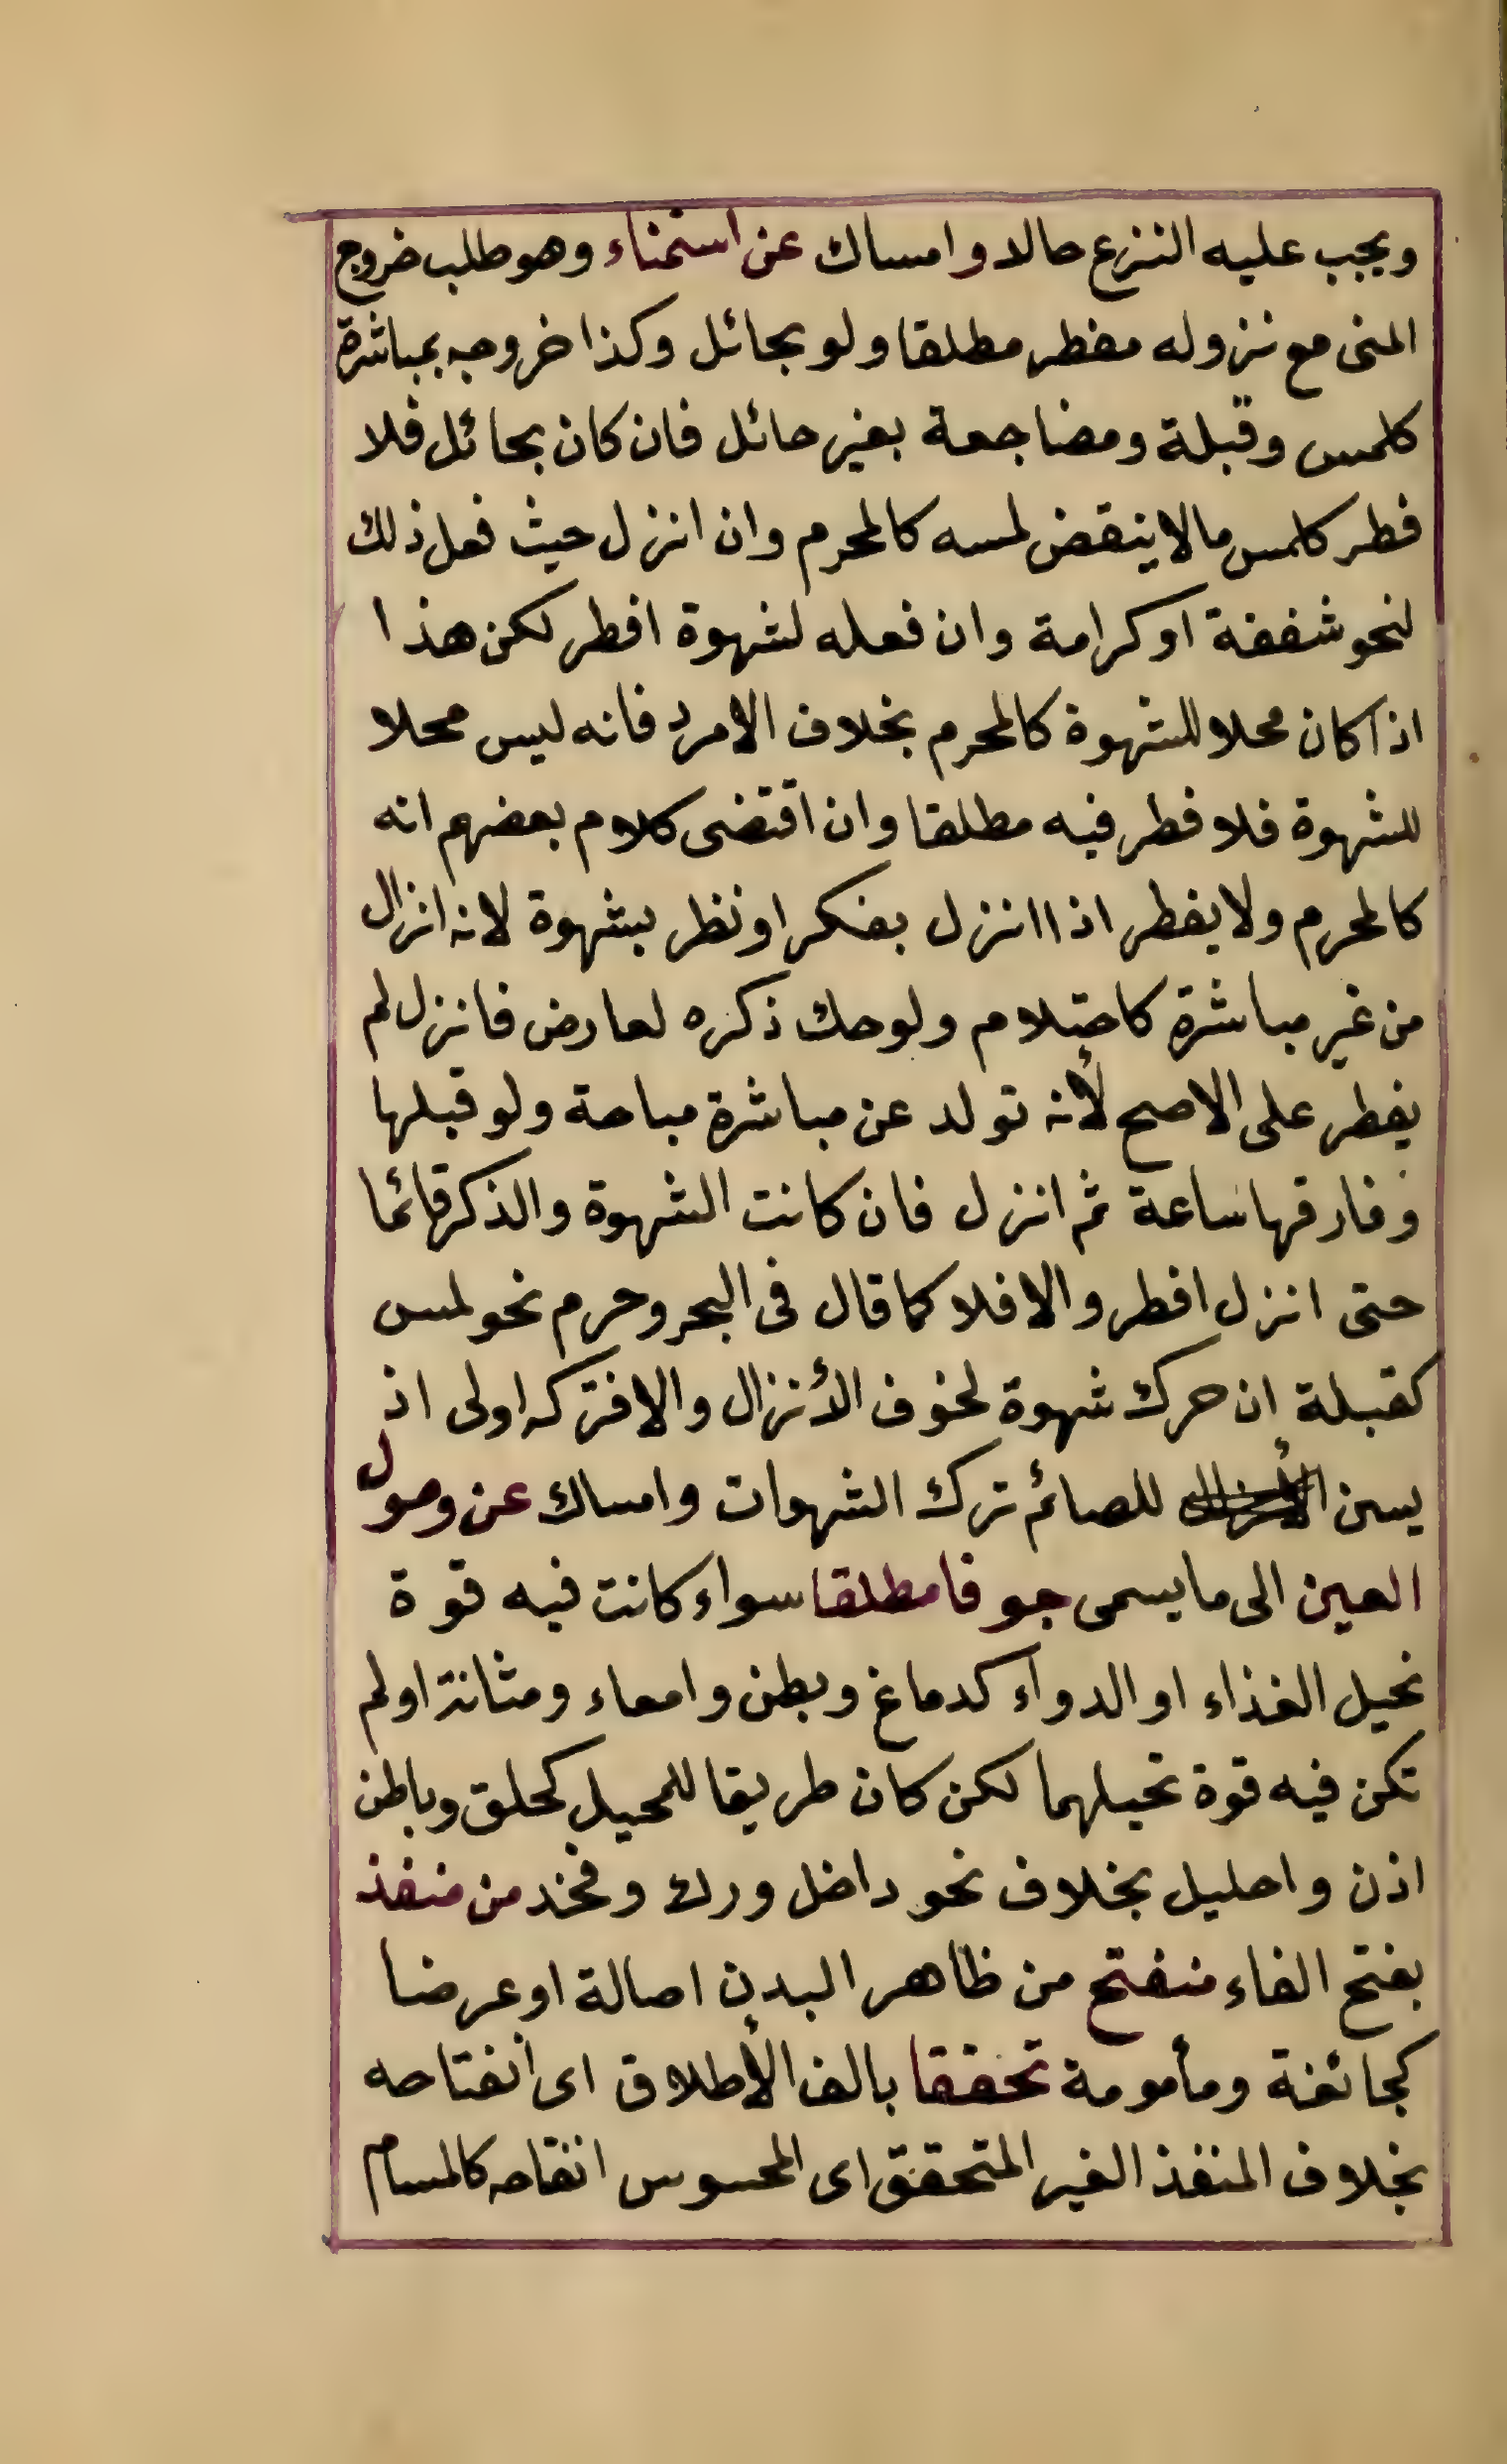 ويجب عليه النزع حالا وامساك عن استمناء وهو طلب خروج
المنى مع نزوله مفطر مطلقا ولو بحائل وكذا خروجه بمباشرة
كلمس وقبلة ومضاجعة بغير حائل فان كان بحائل فلا
فطر كلمس مالا ينقض لمسه كالمحرم وان انزل حيث فعل ذلك
لنحو شفقة او كرامة وان فعله لشهوة افطر لكن هذا
اذا كان محلا للشهوة كالمحرم بخلاف الامرد فانه ليس محلا
للشهوة فلا فطر فيه مطلقا وان اقتضى كلام بعضهم انه
كالمحرم ولا يفطر اذا انزل بفكر او نظر بشهوة لانه انزال
من غير مباشرة كاحتلام ولو حك ذكره لعارض فانزل لم
يفطر على الاصح لأنه تولد عن مباشرة مباحة ولو قبلها
وفارقها ساعة ثم انزل فان كانت الشهوة والذكر قائما
حتى انزل افطر والا فلا كما قال فى البحر وحرم نحو لمس
كقبلة ان حرك شهوة لخوف الأنزال والا فتركه اولى اذ
يسن للصائم ترك الشهوات وامساك عن وصول
العين الى ما يسمى جوفا مطلقا سواء كانت فيه قوة
تحيل الغذاء او الدواء كدماغ وبطن وامعاء ومثانة او لم
تكن فيه قوة تحيلهما لكن كان طريقا للمحيل كحلق وباطن
اذن واحليل بخلاف نحو داخل ورك وفخذ من منفذ
بفتح الفاء منفتح من ظاهر البدن اصالة او عرضا
كجائفة ومأمومة تحققا بالف الأطلاق اى انفتاحه
بخلاف المنفذ الغير المتحقق اى المحسوس انفتاحه كالمسام